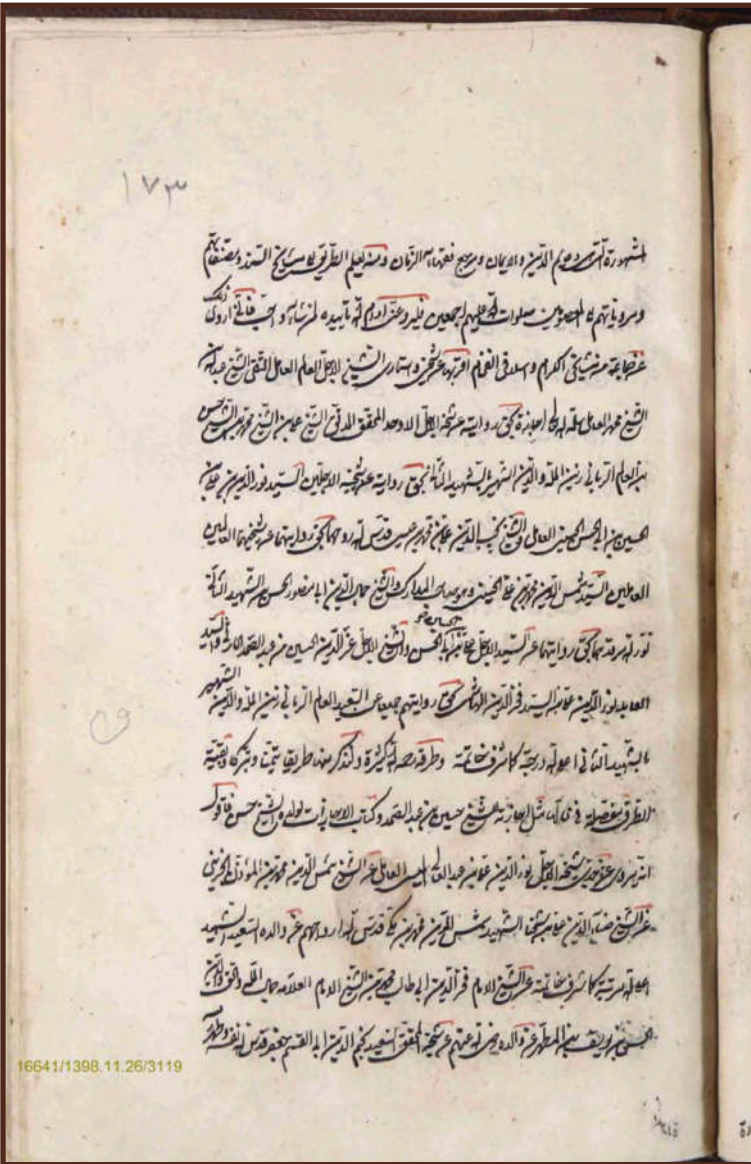 ١٧٣
المشهورة التى عليهم الدين والايمان ومرجع فقهاء الزمان ومنه يعلم الطريق الى مشايخ السند ومصنفاتهم
ومروياتهم الى المعصومين صلوات الله عليهم اجمعين وادام الله تاييده لمن شاء واحب فانى اروى ذلك
عن جماعة من مشايخى الكرام واسلافى الفخام اقربهم شيخى واستادى الشيخ الاجل العالم العامل التقى الشيخ عبد الله بن
الشيخ محمد العاملى سلمه الله اجازة بحق روايته عن شيخه الاجل الاوحد المحقق المدقق الشيخ على بن الشيخ محمد بن الشيخ حسن
بن العالم الربانى زين الملة والدين الشهير بالشهيد الثانى بحق روايته عن شيخيه الاجلين السيد نور الدين بن على بن
الحسين بن ابى الحسن الحسينى العاملى والشيخ نجيب الدين على بن محمد بن عيسى قدس الله روحهما بحق روايتهما عن شيخيهما العالمين
العاملين السيد شمس الدين محمد بن على الحسينى وهو صاحب المدارك والشيخ جمال الدين ابى منصور الحسن بن الشهيد الثانى
نور الله مرقدهما بحق روايتهما عن السيد الاجل على بن ابى الحسن والشيخ الاجل عز الدين الحسين بن عبد الصمد الحارثى والسيد
العابد نور الدين على بن السيد فخر الدين الهاشمى بحق روايتهم جميعا عن السعيد العالم الربانى زين الملة والدين الشهير
بالشهيد الثانى اعلى الله درجته كما شرف خاتمته وطرقه رحمه الله كثيرة ولنذكر منها طريقا تيمنا وتبركا وبقية
الطرق مفصلة فى مثل اجازته للشيخ حسين بن عبد الصمد وكتاب الاجازات لولده الشيخ حسن فاقول
انه يروى عن شيخه الاجل نور الدين على بن عبد العالى الميسى العاملى عن الشيخ شمس الدين محمد بن المؤذن الجزينى
عن الشيخ ضياء الدين على بن شيخنا الشهيد شمس الدين محمد بن مكى قدس الله ارواحهم عن والده السعيد الشهيد
اعلى الله مرتبته كما شرف خاتمته عن الشيخ الامام فخر الدين ابى طالب محمد بن الشيخ الامام العلامة جمال الملة والحق والدين
الحسن بن يوسف بن المطهر عن والده رضى الله عنهم عن شيخه المحقق السعيد نجم الدين ابى القسم جعفر قدس الله نفسه وطهر
16641/1398.11.26/3119